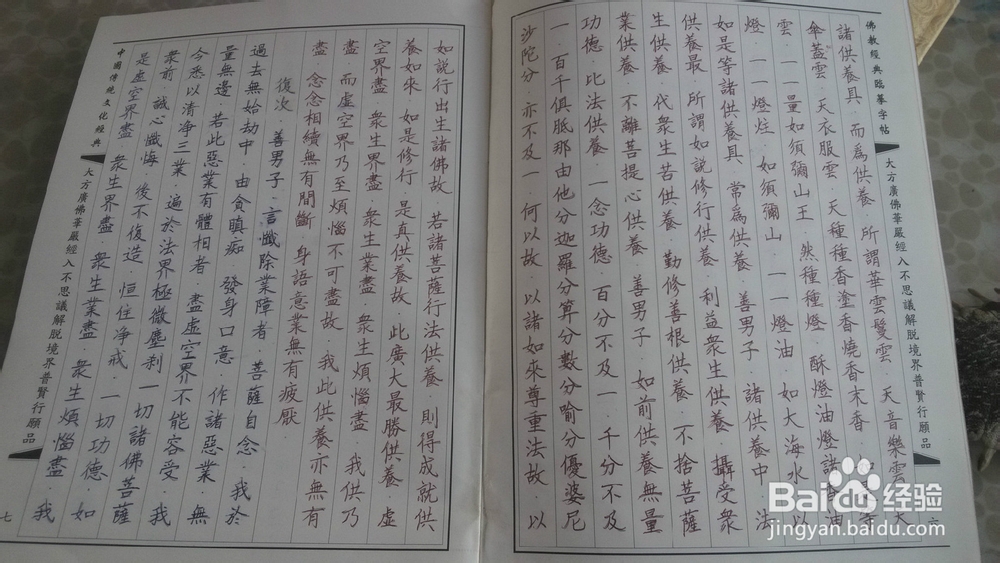 佛教經典臨摹字帖
大方廣佛華嚴經入不思議解脱境界普賢行願品
六
諸供養具．而為供養．所謂華雲鬘雲．天音樂雲．天
傘蓋雲．天衣服雲．天種種香塗香燒香末香．如是等
雲．一一量如須彌山王．然種種燈．酥燈油燈諸香油
燈．一一燈炷．如須彌山．一一燈油．如大海水．以
如是等諸供養具．常為供養．善男子．諸供養中．法
供養最．所謂如説修行供養．利益衆生供養．攝受衆
生供養．代衆生苦供養．勤修善根供養．不捨菩薩
業供養．不離菩提心供養．善男子．如前供養無量
功德．比法供養．一念功德．百分不及一．千分不及
一．百千俱胝那由他分迦羅分算分數分喻分優婆尼
沙陀分．亦不及一．何以故．以諸如來尊重法故．以
如説行出生諸佛故．若諸菩薩行法供養．則得成就供
養如來．如是修行．是真供養故．此廣大最勝供養．虛
空界盡．衆生界盡．衆生業盡．衆生煩惱盡．我供乃
盡．而虛空界乃至煩惱不可盡故．我此供養亦無有
盡．念念相續無有間斷．身語意業無有疲厭．
復次．善男子．言懺除業障者．菩薩自念．我於
過去無始劫中．由貪瞋痴．發身口意．作諸惡業．無
量無邊．若此惡業有體相者．盡虛空界不能容受．我
今悉以清淨三業．遍於法界極微塵刹一切諸佛菩薩
衆前．誠心懺悔．後不復造．恒住淨戒．一切功德．如
是虛空界盡．衆生界盡．衆生業盡．衆生煩惱盡．我
大方廣佛華嚴經入不思議解脱境界普賢行願品
七
中國傳統文化經典
Baidu经验
jingyan.baidu.com